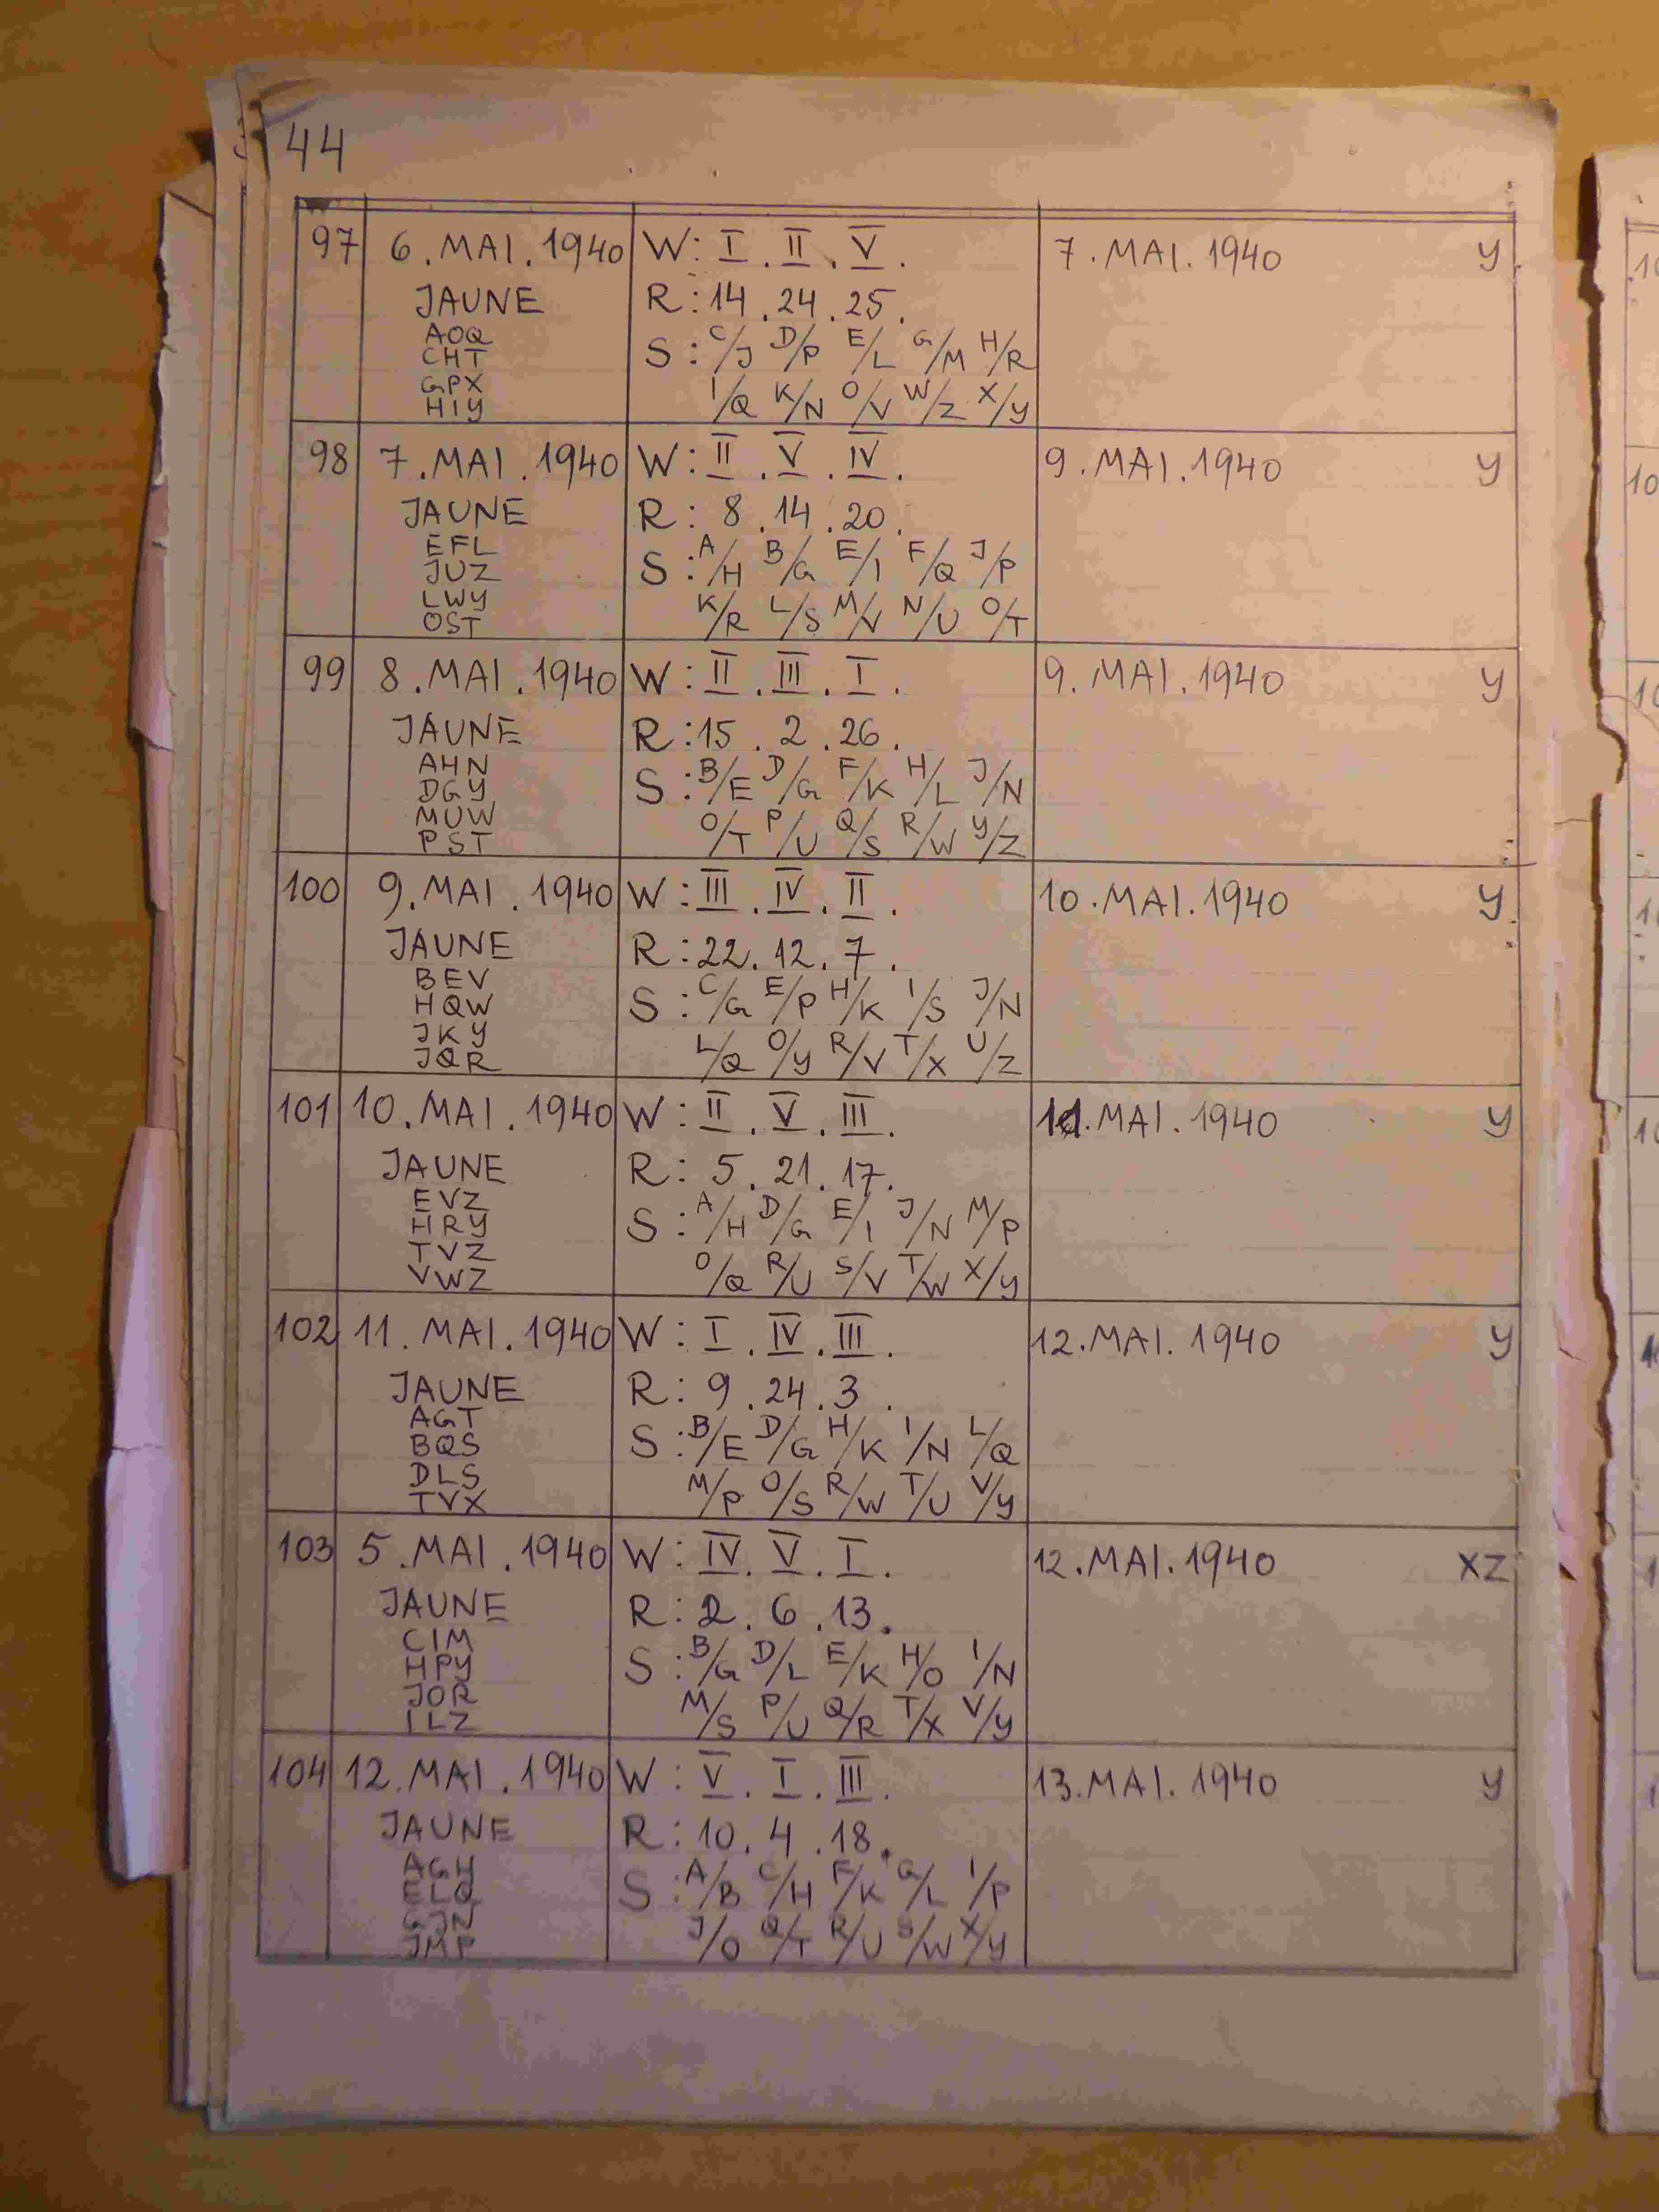 44
97 6. MAI. 1940 W: I. II. V. 7. MAI. 1940 Y
JAUNE R: 14. 24. 25.
AOQ
CHT S: C/J D/P E/L G/M H/R
GPX
HIY I/Q K/N O/V W/Z X/Y
98 7. MAI. 1940 W: II. V. IV. 9. MAI. 1940 Y
JAUNE R: 8. 14. 20.
EFL
JUZ S: A/H B/G E/I F/Q J/P
LWY
OST K/R L/S M/V N/U O/T
99 8. MAI. 1940 W: II. III. I. 9. MAI. 1940 Y
JAUNE R: 15. 2. 26.
AHN
DGY S: B/E D/G F/K H/L J/N
MUW
PST O/T P/U Q/S R/W Y/Z
100 9. MAI. 1940 W: III. IV. II. 10. MAI. 1940 Y
JAUNE R: 22. 12. 7.
BEV
HQW S: C/G E/P H/K I/S J/N
JKY
JQR L/Q O/Y R/V T/X U/Z
101 10. MAI. 1940 W: II. V. III. 11. MAI. 1940 Y
JAUNE R: 5. 21. 17.
EVZ
HRY S: A/H D/G E/I J/N M/P
TVZ
VWZ O/Q R/U S/V T/W X/Y
102 11. MAI. 1940 W: I. IV. III. 12. MAI. 1940 Y
JAUNE R: 9. 24. 3.
AGT
BQS S: B/E D/G H/K I/N L/Q
DLS
TVX M/P O/S R/W T/U V/Y
103 5. MAI. 1940 W: IV. V. I. 12. MAI. 1940 XZ
JAUNE R: 2. 6. 13.
CIM
HPY S: B/G D/L E/K H/O I/N
JOR
ILZ M/S P/U Q/R T/X V/Y
104 12. MAI. 1940 W: V. I. III. 13. MAI. 1940 Y
JAUNE R: 10. 4. 18.
AGH
ELQ S: A/B C/H F/K G/L I/P
GJN
JMP J/O Q/T R/U S/W X/Y